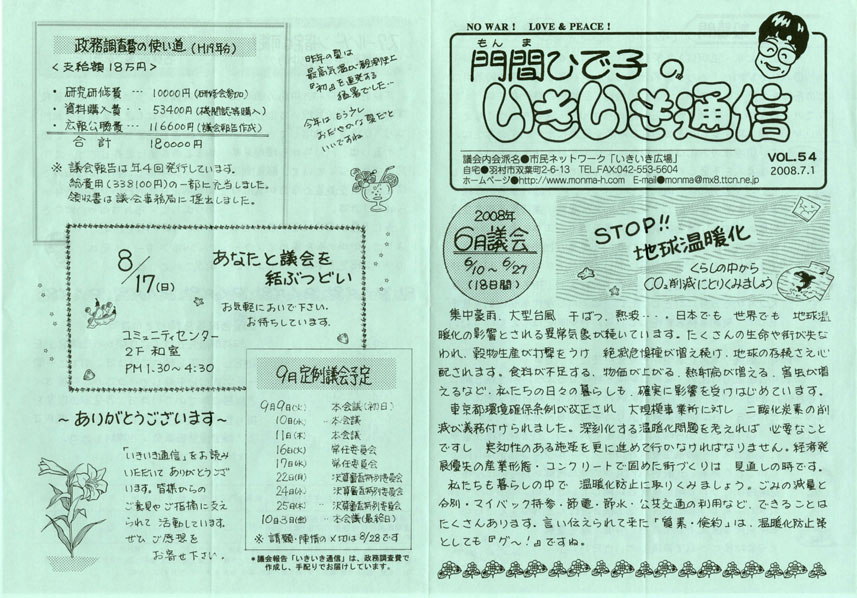 NO WAR！ LOVE & PEACE！
もんま
門間ひで子の
いきいき通信
議会内会派名●市民ネットワーク「いきいき広場」
自宅●羽村市双葉町2-6-13 TEL.FAX:042-553-5604
ホームページ●http://www.monma-h.com E-mail●monma@mx8.ttcn.ne.jp
VOL.54
2008.7.1
2008年
6月議会
6/10～6/27
(18日間)
STOP!!
地球温暖化
くらしの中から
CO₂削減にとりくみましょう
集中豪雨、大型台風 干ばつ、熱波・・・。日本でも 世界でも 地球温
暖化の影響とされる異常気象が続いています。たくさんの生命や街が失な
われ、穀物生産が打撃をうけ 絶滅危惧種が増え続け、地球の存続さえ心
配されます。食料が不足する、物価が上がる、熱射病が増える、害虫が増
えるなど、私たちの日々の暮らしも、確実に影響を受けはじめています。
東京都環境確保条例が改正され 大規模事業所に対し 二酸化炭素の削
減が義務付けられました。深刻化する温暖化問題を考えれば 必要なこと
ですし 実効性のある施策を更に進めて行かなければなりません。経済発
展優先の産業形態・コンクリートで固めた街づくりは 見直しの時です。
私たちも暮らしの中で 温暖化防止に取りくみましょう。ごみの減量と
分別・マイバック持参・節電・節水・公共交通の利用など、できることは
たくさんあります。言い伝えられて来た「質素・倹約」は、温暖化防止策
としても『グ～！』ですね。
政務調査費の使い道 (H19年分)
＜支給額18万円＞
・研究研修費 ･･･ 10000円(研修会参加)
・資料購入費 ･･ 53400円(機関誌等購入)
・広報公聴費 ･･･ 116600円(議会報告作成)
合計 180000円
※ 議会報告は年4回発行しています。
総費用(338100円)の一部に充当しました。
領収書は議会事務局に提出しました。
昨年の夏は
最高気温が観測史上
『初』を連発する
猛暑でした…
今年はもう少し
おだやかな夏だと
いいですね
8/17(日)
あなたと議会を
結ぶつどい
お気軽においで下さい。
お待ちしています。
コミュニティセンター
2F 和室
PM 1.30～4:30
9月定例議会予定
9月9日(火) 本会議(初日)
10日(水) ･･ 本会議
11日(木) 本会議
16日(火) 常任委員会
17日(水) 常任委員会
22日(月) 決算審査特別委員会
24日(水) 決算審査特別委員会
25日(木) 決算審査特別委員会
10月3日(金) ･･本会議(最終日)
※ 請願・陳情の〆切は8/28です
～ありがとうございます～
「いきいき通信」をお読み
いただいて ありがとうござ
います。皆様からの
ご意見やご指摘に支え
られて 活動しています。
ぜひ ご感想を
お寄せ下さい。
＊議会報告「いきいき通信」は、政務調査費で
作成し、手配りでお届けしています。